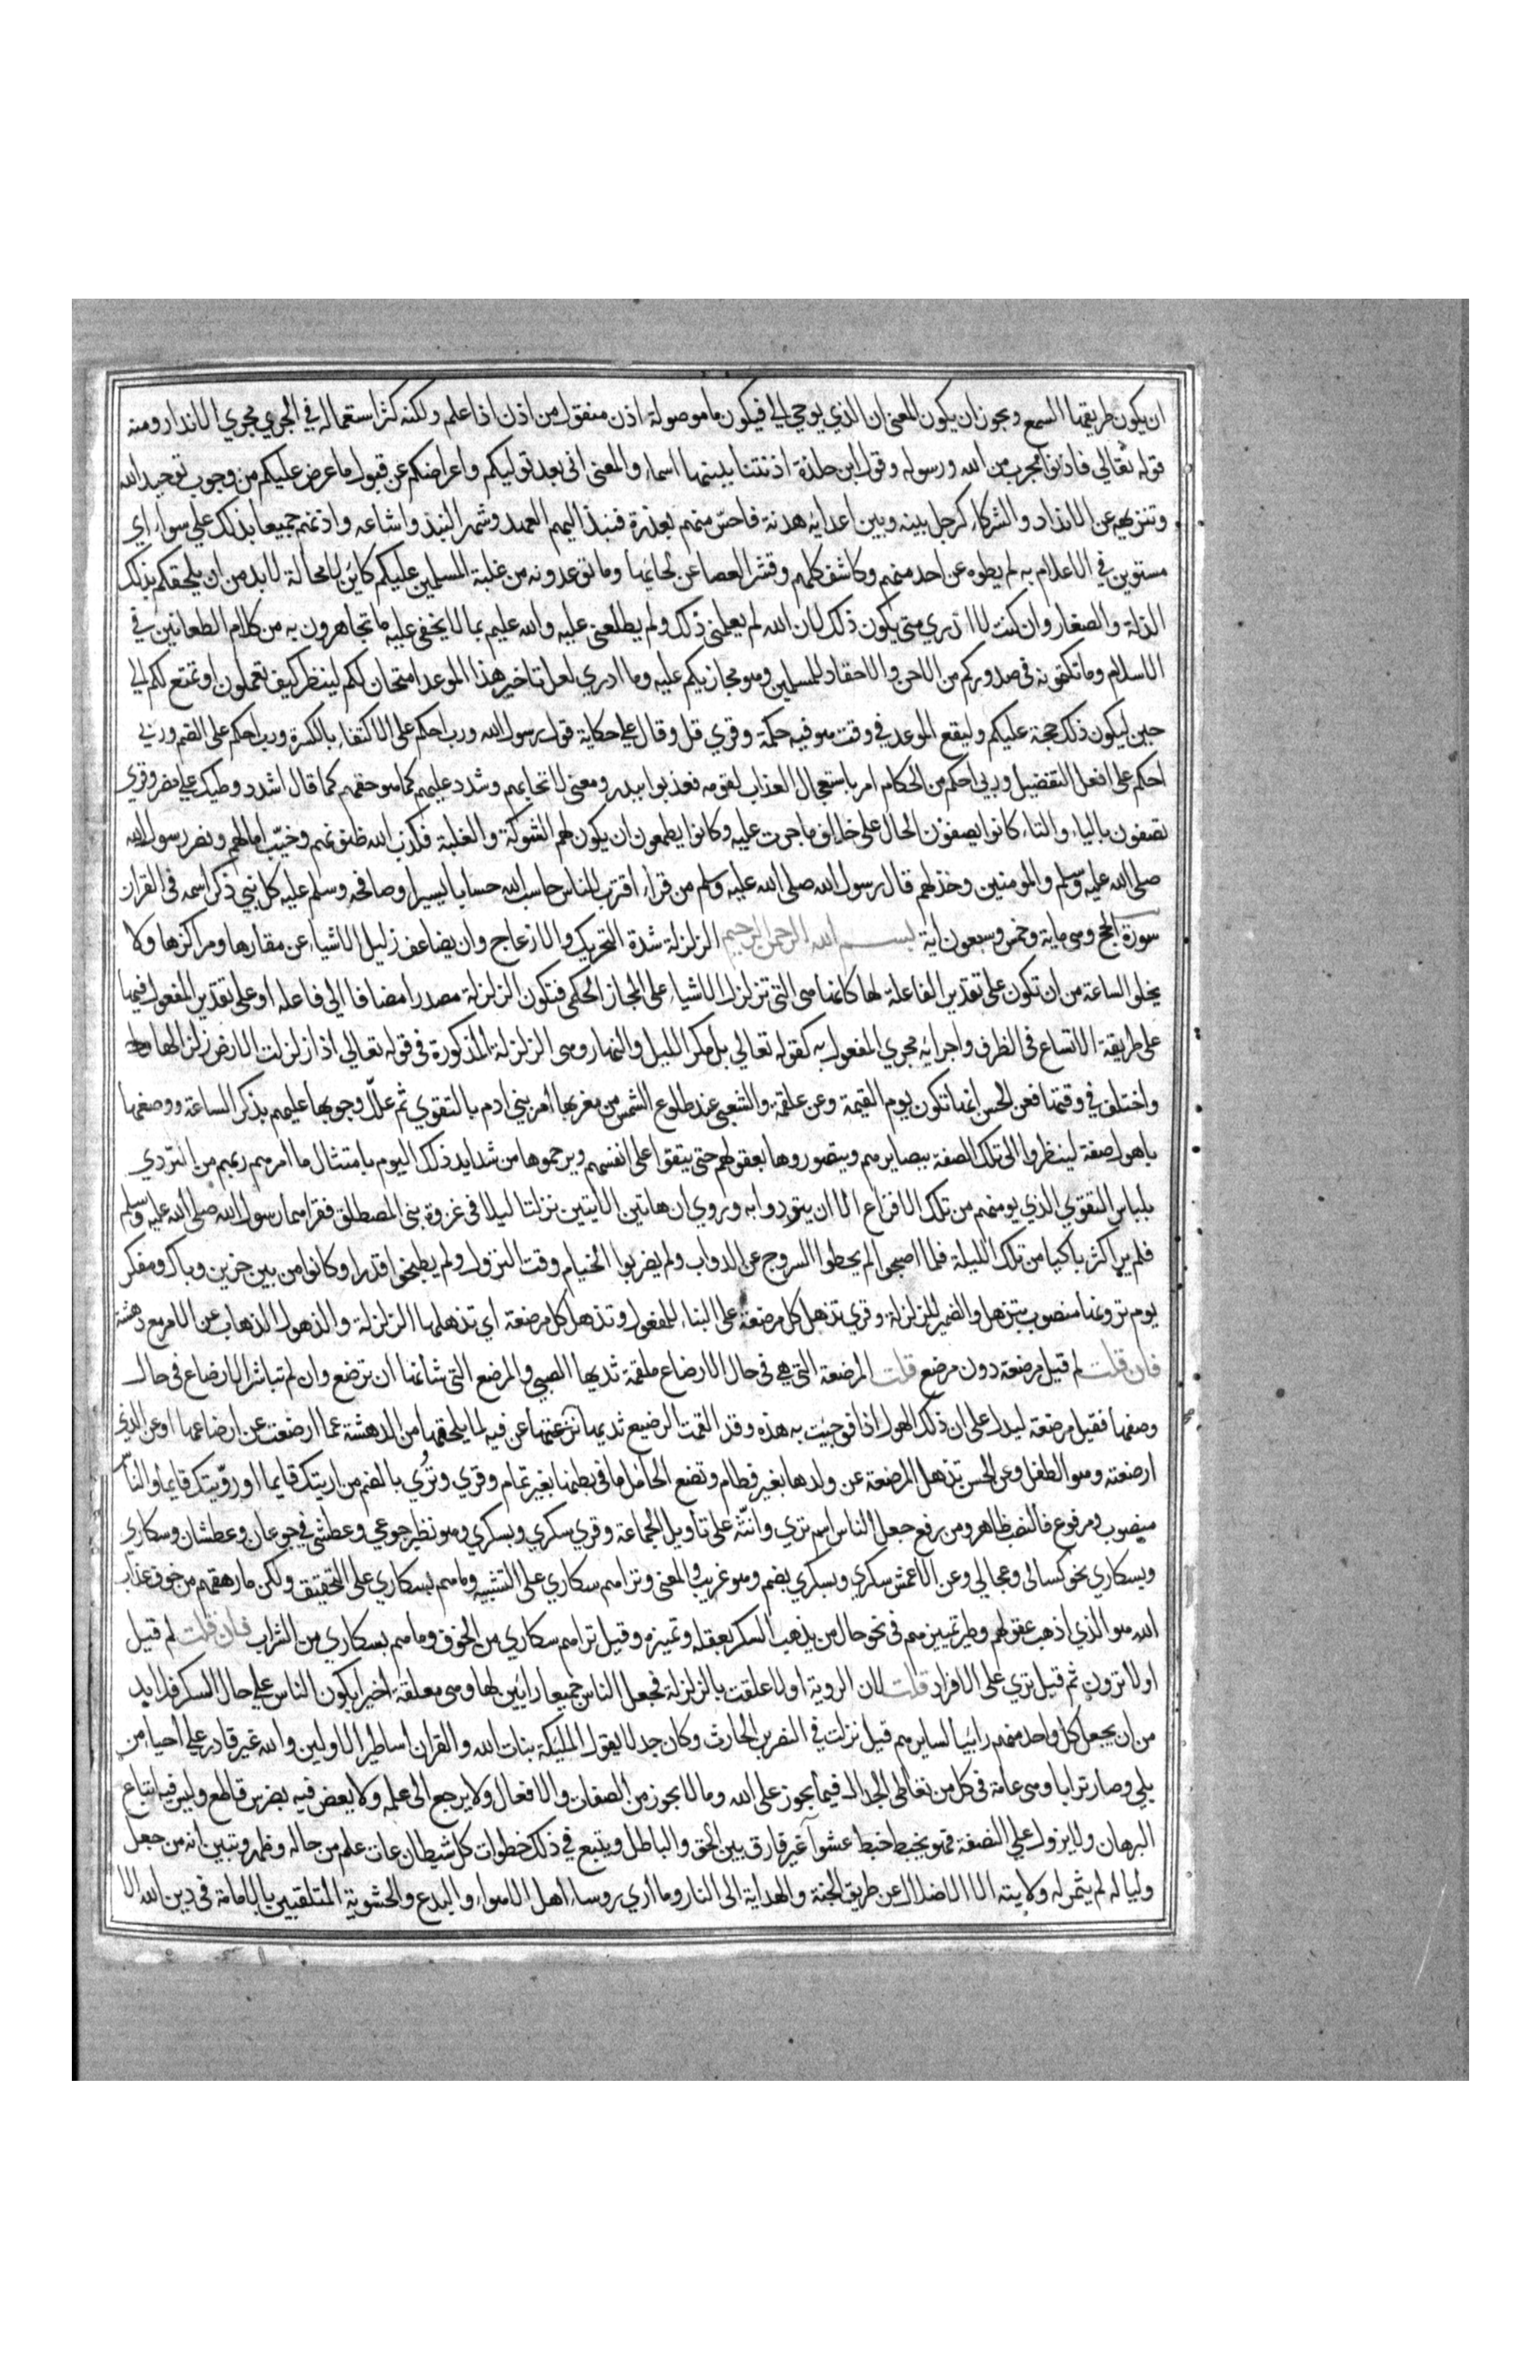 ان يكون طريقها السمع ويجوز ان يكون المعنى ان الذي يوحي الي فيكون ما موصولة اذن منقول من اذن اذا علم ولكنه كثر استعماله في الجري مجري الانذار ومنه
قوله تعالي فاذنوا بحرب من الله ورسوله وقول ابن حلزة اذنتنا ببينها اسماء والمعنى اني بعد توليكم واعراضكم عن قبول ما عرض عليكم من وجوب توحيد الله
وتنزيهه عن الانداد والشركاء كرجل بينه وبين اعدايه هدنة فاحسّ منهم بغدرة فنبذ اليهم العهد وشهر النبذ واشاعه واذنهم جميعا بذلك علي سواء اي
مستوين في الاعلام به لم يطوه عن احد منهم وكاشف كلهم وقشر العصا عن لحائها وما توعدونه من غلبة المسلمين عليكم كائن لا محالة لا بد من ان يلحقكم بذلك
الذلة والصغار وان كنت لا ادري متى يكون ذلك لان الله لم يعلمني ذلك ولم يطلعني عليه والله عليم بما لا يخفى عليه ما تجاهرون به من كلام الطعانين في
الاسلام وما تكتمونه في صدوركم من الاحن والاحقاد للمسلمين وهو مجازيكم عليه وما ادري لعل تاخير هذا الموعد امتحان لكم لينظر كيف تعملون او تمتع لكم الي
حين ليكون ذلك حجة عليكم وليقع الموعد في وقت هو فيه حكمة وقري قل وقال علي حكاية قول رسول الله ورب احكم على الاكتفاء بالكسرة ورب احكم على الضم وربي
احكم على افعل التفضيل وربي احكم من الاحكام امر باستعجال العذاب لقومه فعذبوا ببدر ومعنى لا تحابهم وشدد عليهم كما هو حقهم كما قال اشدد وطيك علي مضر وقري
تصفون بالياء والتاء كانوا يصفون الحال على خلاف ما جرت عليه وكانوا يطمعون ان يكون لهم الشوكة والغلبة فكذب الله ظنونهم وخيّب امالهم ونصر رسول الله
صلى الله عليه وسلم والمومنين وخذلهم قال رسول الله صلى الله عليه وسلم من قرا اقترب للناس حاسبه الله حسابا يسيرا وصافحه وسلم عليه كل نبي ذكر اسمه في القران
سورة الحج وهي ماية وخمس وسبعون اية بسم الله الرحمن الرحيم الزلزلة شدة التحريك والازعاج وان يضاعف زليل الاشياء عن مقارها ومراكزها ولا
يخلو الساعة من ان تكون على تقدير الفاعلة لها كانها هي التي تزلزل الاشياء على المجاز الحكمي فتكون الزلزلة مصدرا مضافا الي فاعله او على تقدير المفعول فيها
على طريقة الاتساع في الظرف واجرايه مجري المفعول به كقوله تعالي بل مكر الليل والنهار وهي الزلزلة المذكورة في قوله تعالي اذا زلزلت الارض زلزالها
واختلف في وقتها فعن الحسن انها تكون يوم القيمة وعن علقمة والشعبي عند طلوع الشمس من مغربها امر بني ادم بالتقوي ثم علّل وجوبها عليهم بذكر الساعة ووصفها
باهول صفة لينظروا الى تلك الصفة ببصايرهم ويتصوروها بعقولهم حتى يتقوا على انفسهم ويرحموها من شدايد ذلك اليوم بامتثال ما امرهم ربهم من التردي
بلباس التقوي الذي يومنهم من تلك الافزاع الا ان يتردوا به وروي ان هاتين الآيتين نزلتا ليلا في غزوة بني المصطلق فقراهما رسول الله صلى الله عليه وسلم
فلم ير اكثر باكيا من تلك الليلة فلما اصبحوا لم يحطوا السروج عن الدواب ولم يضربوا الخيام وقت النزول ولم يطبخوا قدرا وكانوا من بين حزين وباك ومفكر
يوم ترونها منصوب بتذهل والضمير للزلزلة وقري تذهل كل مرضعة على البناء للمفعول وتذهل كل مرضعة اي تذهلها الزلزلة والذهول الذهاب عن الامر مع دهشة
فان قلت لم قيل مرضعة دون مرضع قلت المرضعة التي هي في حال الارضاع ملقمة ثديها الصبي والمرضع التي شانها ان ترضع وان لم تباشر الارضاع في حال
وصفها فقيل مرضعة ليدل على ان ذلك الهول اذا فوجيت به هذه وقد القمت الرضيع ثديها نزعتها عن فيه لما يلحقها من الدهشة عما ارضعت عن ارضاعها او عن الذي
ارضعته وهو الطفل وعن الحسن تذهل المرضعة عن ولدها بغير فطام وتضع الحامل ما في بطنها بغير تمام وقري وتُري بالضم من اريتك قايما او رؤيتك قايما والناس
منصوب ومرفوع فالنصب ظاهر ومن رفع جعل الناس اسم تري وانثه على تاويل الجماعة وقري سكري وبسكري وهو نظير جوعي وعطشي في جوعان وعطشان وسكاري
وبسكاري نحو كسالى وعجالي وعن الاعمش سكري وبسكري بضم وهو غريب والمعنى وتراهم سكاري على التشبيه وما هم بسكاري على التحقيق ولكن ما رهقهم من خوف عذاب
الله هو الذي اذهب عقولهم وطير تمييزهم في نحو حال من يذهب السكر بعقله وتمييزه وقيل تراهم سكاري من الخوف وما هم بسكاري من الشراب فان قلت لم قيل
اولا ترون ثم قيل تري على الافراد قلت لان الروية اولا علقت بالزلزلة فجعل الناس جميعا رايين لها وهي معلقة اخيرا بكون الناس علي حال السكر فلا بد
من ان يجعل كل واحد منهم رايئا لسايرهم قيل نزلت في النضر بن الحارث وكان جدلا يقول المليكة بنات الله والقران اساطير الاولين والله غير قادر علي احياء من
بلي وصار ترابا وهي عامة في كل من تعاطى الجدال فيما يجوز على الله وما لا يجوز من الصفات والافعال ولا يرجع الى علم ولا يعض فيه بضرس قاطع وليس فيه اتباع
البرهان ولا نزول علي النصفة فهو يخبط خبط عشوا غير فارق بين الحق والباطل ويتبع في ذلك خطوات كل شيطان عات علم من حاله وظهر وتبين انه من جعل
وليا له لم يثمر له ولايته الا الاضلال عن طريق الجنة والهداية الى النار وما اري روساء اهل الاهواء والبدع والحشوية المتلقبين بالامامة في دين الله الا